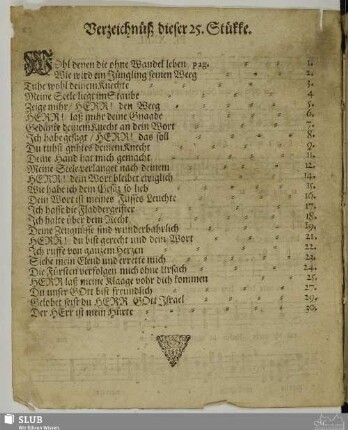 Verzeichnüß dieser 25. Stükke.
Wohl denen die ohne Wandel leben pag. 1.
Wie wird ein Jüngling seinen Weeg 2.
Tuhe wohl deinem Knechte 3.
Meine Seele liegt im Staube 4.
Zeige mihr/ HERR! den Weeg 5.
HERR! laß mihr deine Gnaade 6.
Gedänke deinem Knecht an dein Wort 7.
Ich habe gesagt/ HERR! das soll 8.
Du tuhst guhtes deinem Knecht 9.
Deine Hand hat mich gemacht 11.
Meine Seele verlanget nach deinem 12.
HERR! dein Wort bleibet ewiglich 14.
Wie habe ich dein Gesätz so lieb 15.
Dein Wort ist meines Fusses Leuchte 16.
Ich hasse die Fladdergeister 17.
Ich halte über dem Recht 18.
Deine Zeugnüsse sind wunderbahrlich 19.
HERR! du bist gerecht und dein Wort 21.
Ich ruffe von ganzem Herzen 22.
Siehe mein Elend und errette mich 23.
Die Fürsten verfolgen mich ohne Ursach 24.
HERR laß meine Klaage vohr dich kommen 25.
Du unser GOtt bist freundlich 27.
Gelobet seist du HERR GOtt Israel 29.
Der HErr ist mein Hürte 30.
SLUB
Wir führen Wissen.